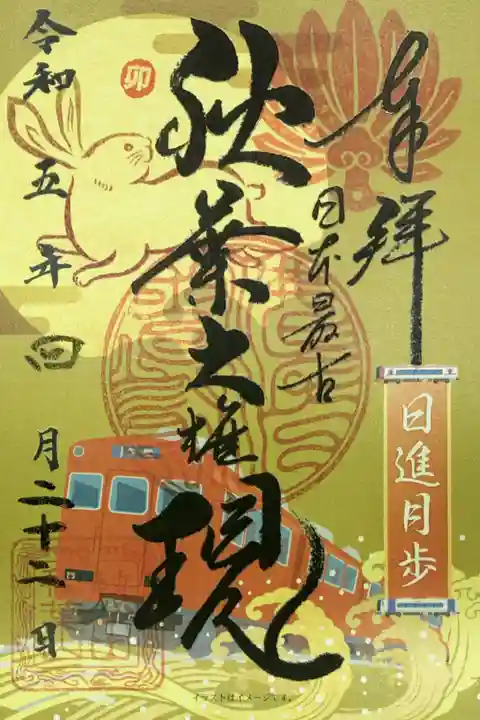 奉拝
日本最古
秋葉大権現
令和五年四月二十二日
卯
日進月歩
イラストはイメージです。